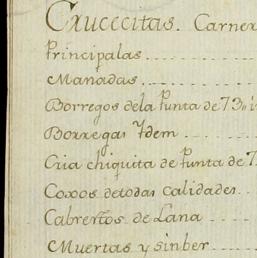 Crucecitas. Carner
Principalas
Manadas
Borregos dela Punta de 73
Borregas Ydem
Cria chiquita de Punta de 7
Coxos detodas calidades
Cabrertos de Lana
Muertas y sinber